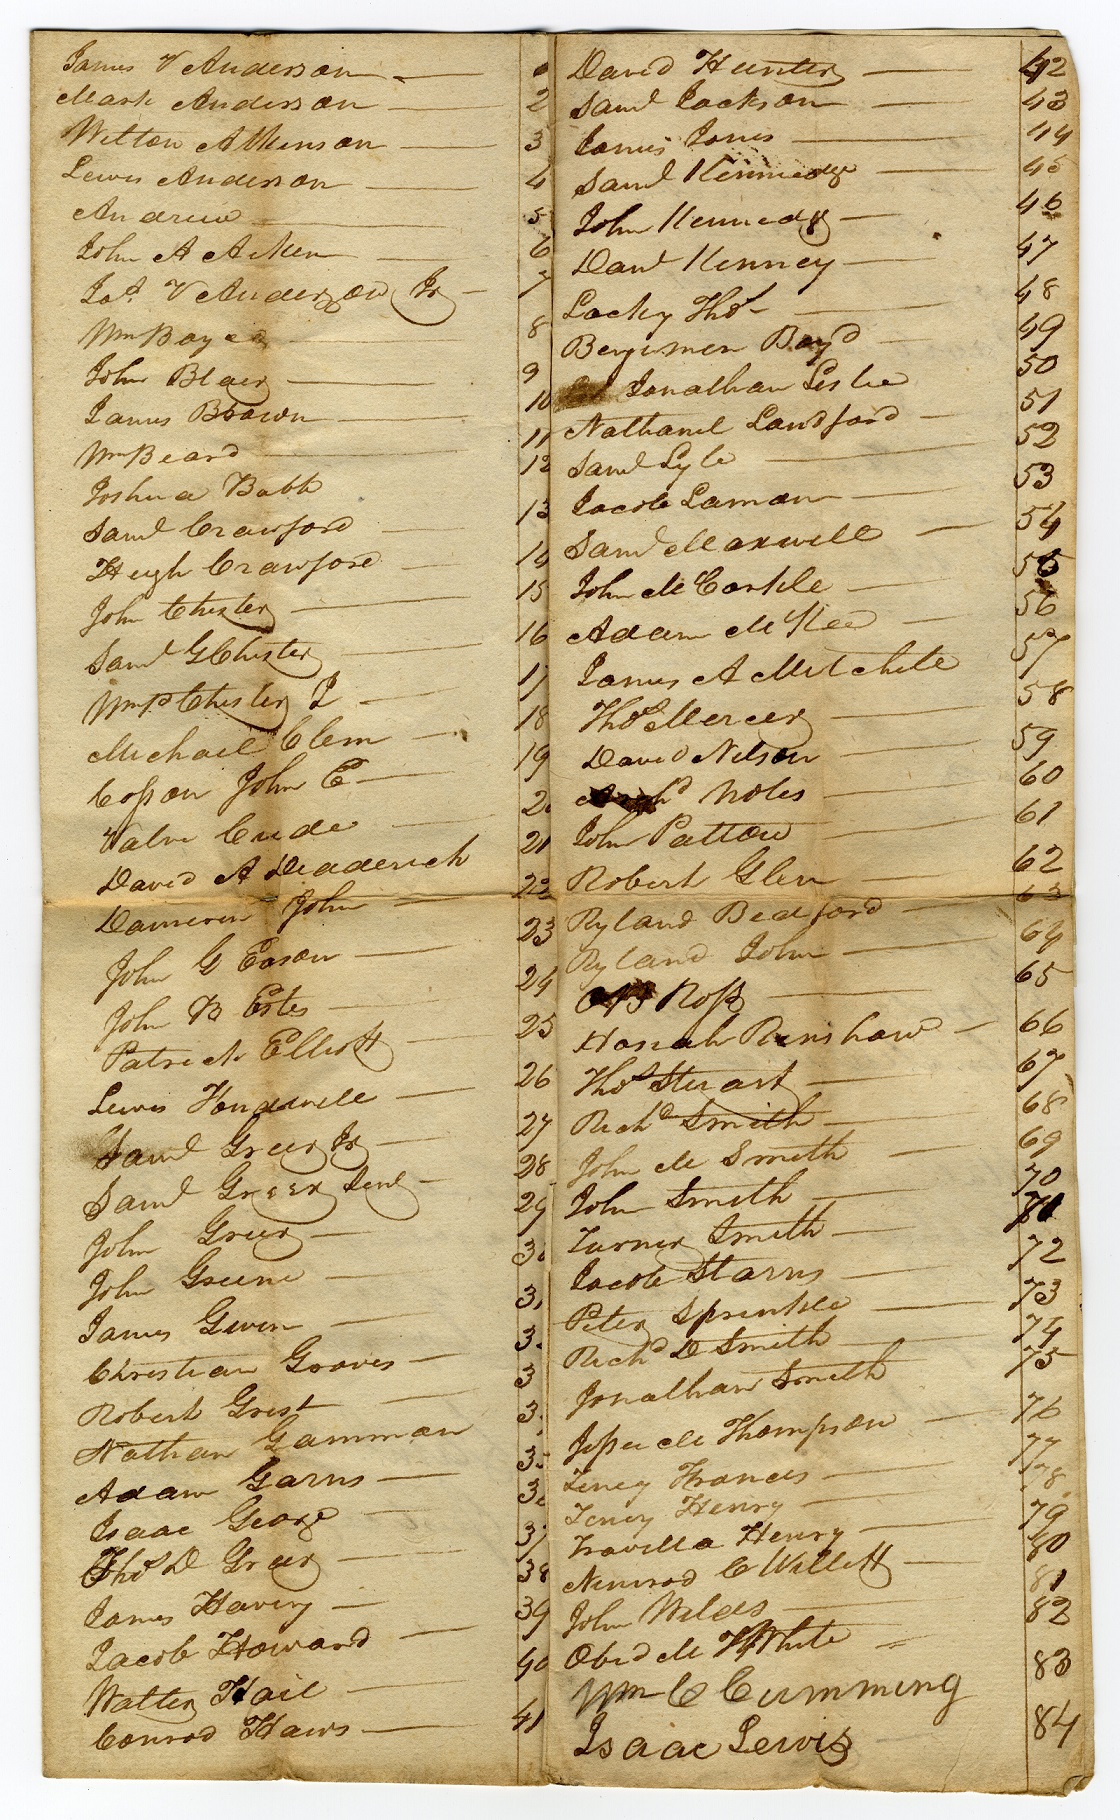 James V Anderson
Mark Anderson 2
Wilton Atkinson 3
Lewis Anderson 4
Andrew 5
John A Aiken 6
Jas. V Anderson Jr 7
Wm Boyed 8
John Blair 9
James Brown 10
Wm Beard 11
Joshua Babb 12
Saml Crawford 13
Hugh Crawford 14
John Chester 15
Saml G Chester 16
Wm P Chester J 17
Michael Clem 18
Cosson John E 19
Valn Cude 20
David A Deaderick 21
Dameron John 22
John G Eason 23
John B Estes 24
Patrick Elliott 25
Lewis Honawell 26
Saml Greer Jr 27
Saml Greer Senr 28
John Greer 29
John Greene 30
James Gwin 3
Christian Groves 3
Robert Grist 3
Nathan Gammon 3
Adam Garns 35
Isaac George 3
Thos D Greer 37
James Haviry 38
Jacob Howard 39
Walter Hail 40
Conrod Haws 41
David Hunter 42
Saml Jackson 43
James Jones 44
Saml Kennedge 45
John Kennedy 46
Danl Kenney 47
Lacky Thos 48
Bengemen Boyd 49
Jonathan Leslie 50
Nathanel Landford 51
Saml Lyle 52
Jacob Laman 53
Saml Maxwell 54
John McCorkle 55
Adam McKee 56
James A Mitchele 57
Thos Mercer 58
David Nelson 59
Noles 60
John Patton 61
Robert Glen 62
Ryland Bedford 63
Ryland John 64
Ross 65
Hosiah Renshaw 66
Thos Stuart 67
Richd Smith 68
John M Smith 69
John Smith 70
Turner Smith 71
Jacob Starns 72
Peter Sprinkle 73
Richd D Smith 74
Jonathan Smith 75
Jesse M Thompson 76
Teney Frances 77
Teney Henry 78
Travella Henry 79
Nimrod C Willett 80
John Wilds 81
Obed M White 82
Wm C Cumming 83
Isaac Lewis 84